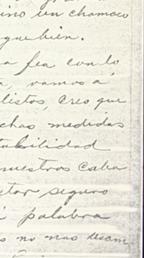 ino un chamaco
que bien.
a fea con lo
, vamos á
listos, creo que
chas medidas
abilidad
nuestros caba
ctor seguro
i palabra
s no mas desean